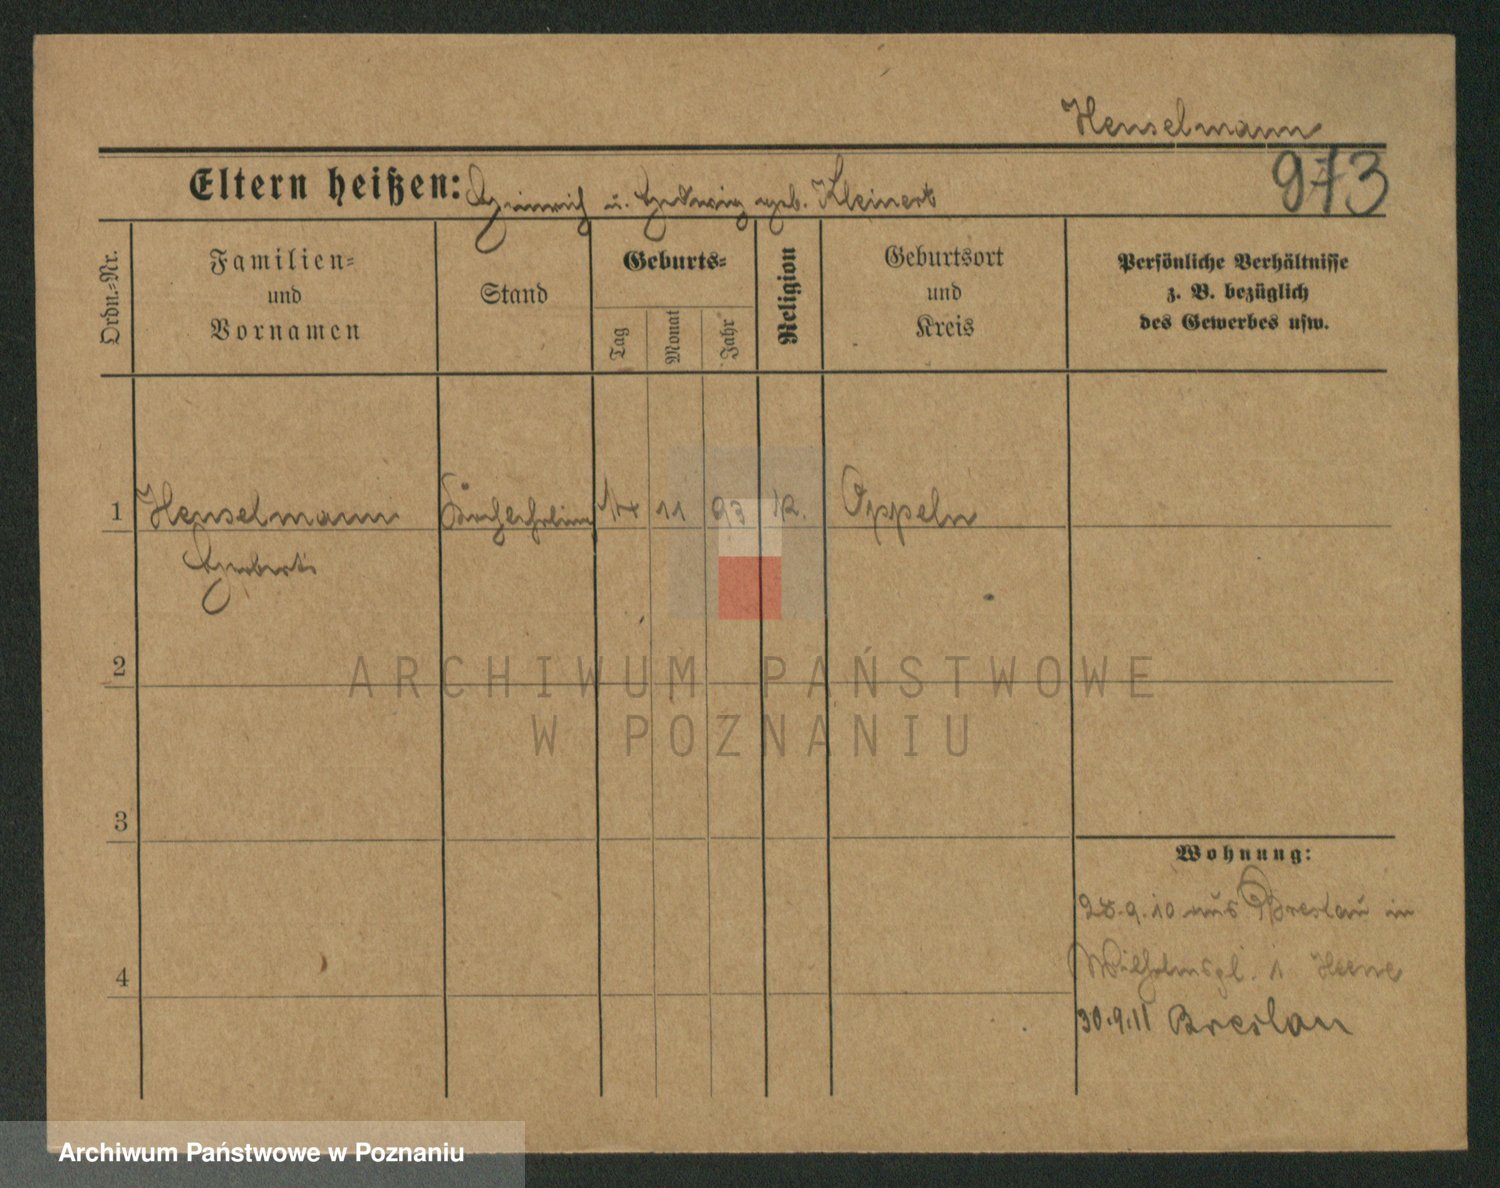 Henselmann
973
Eltern heißen: Heinrich u. Hedwig geb. Kleinert
Ordn.-Nr.
Familien-
und
Vornamen
Stand
Geburts-
Tag
Monat
Jahr
Religion
Geburtsort
und
Kreis
Persönliche Verhältnisse
z. B. bezüglich
des Gewerbes usw.
1 Henselmann 11 93 k. Oppeln
2
3
4
Wohnung:
28.9.10 aus Breslau in
Wilhelmspl. 1
30.9.11 Breslau
ARCHIWUM PAŃSTWOWE
W POZNANIU
Archiwum Państwowe w Poznaniu